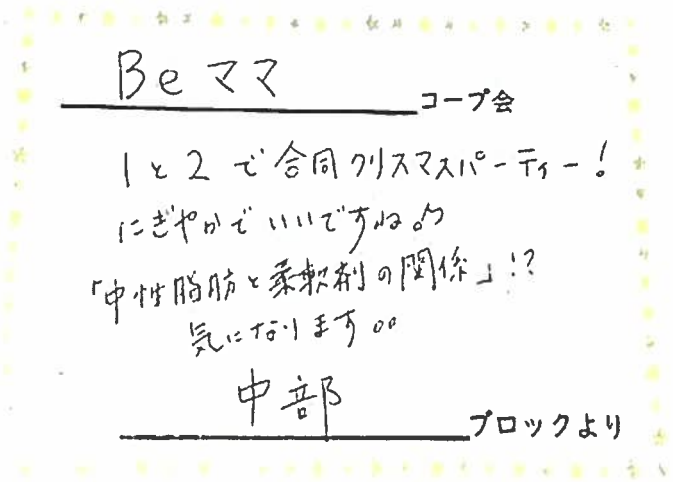 Beママ コープ会
1と2で合同クリスマスパーティー!
にぎやかでいいですね♪
「中性脂肪と柔軟剤の関係」!?
気になります。。
中部 ブロックより